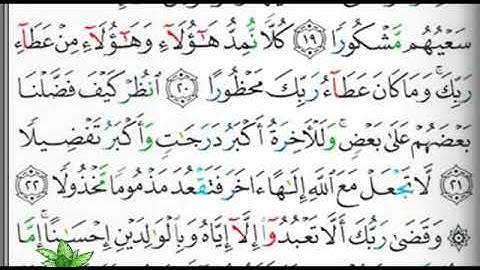 سَعْيُهُم مَّشْكُورًا ١٩ كُلًّا نُّمِدُّ هَـٰٓؤُلَآءِ وَهَـٰٓؤُلَآءِ مِنْ عَطَآءِ
رَبِّكَ ۚ وَمَا كَانَ عَطَآءُ رَبِّكَ مَحْظُورًا ٢٠ ٱنظُرْ كَيْفَ فَضَّلْنَا
بَعْضَهُمْ عَلَىٰ بَعْضٍ ۚ وَلَلْـَٔاخِرَةُ أَكْبَرُ دَرَجَـٰتٍ وَأَكْبَرُ تَفْضِيلًا
٢١ لَّا تَجْعَلْ مَعَ ٱللَّهِ إِلَـٰهًا ءَاخَرَ فَتَقْعُدَ مَذْمُومًا مَّخْذُولًا ٢٢
۞ وَقَضَىٰ رَبُّكَ أَلَّا تَعْبُدُوٓا۟ إِلَّآ إِيَّاهُ وَبِٱلْوَٰلِدَيْنِ إِحْسَـٰنًا ۚ إِمَّا